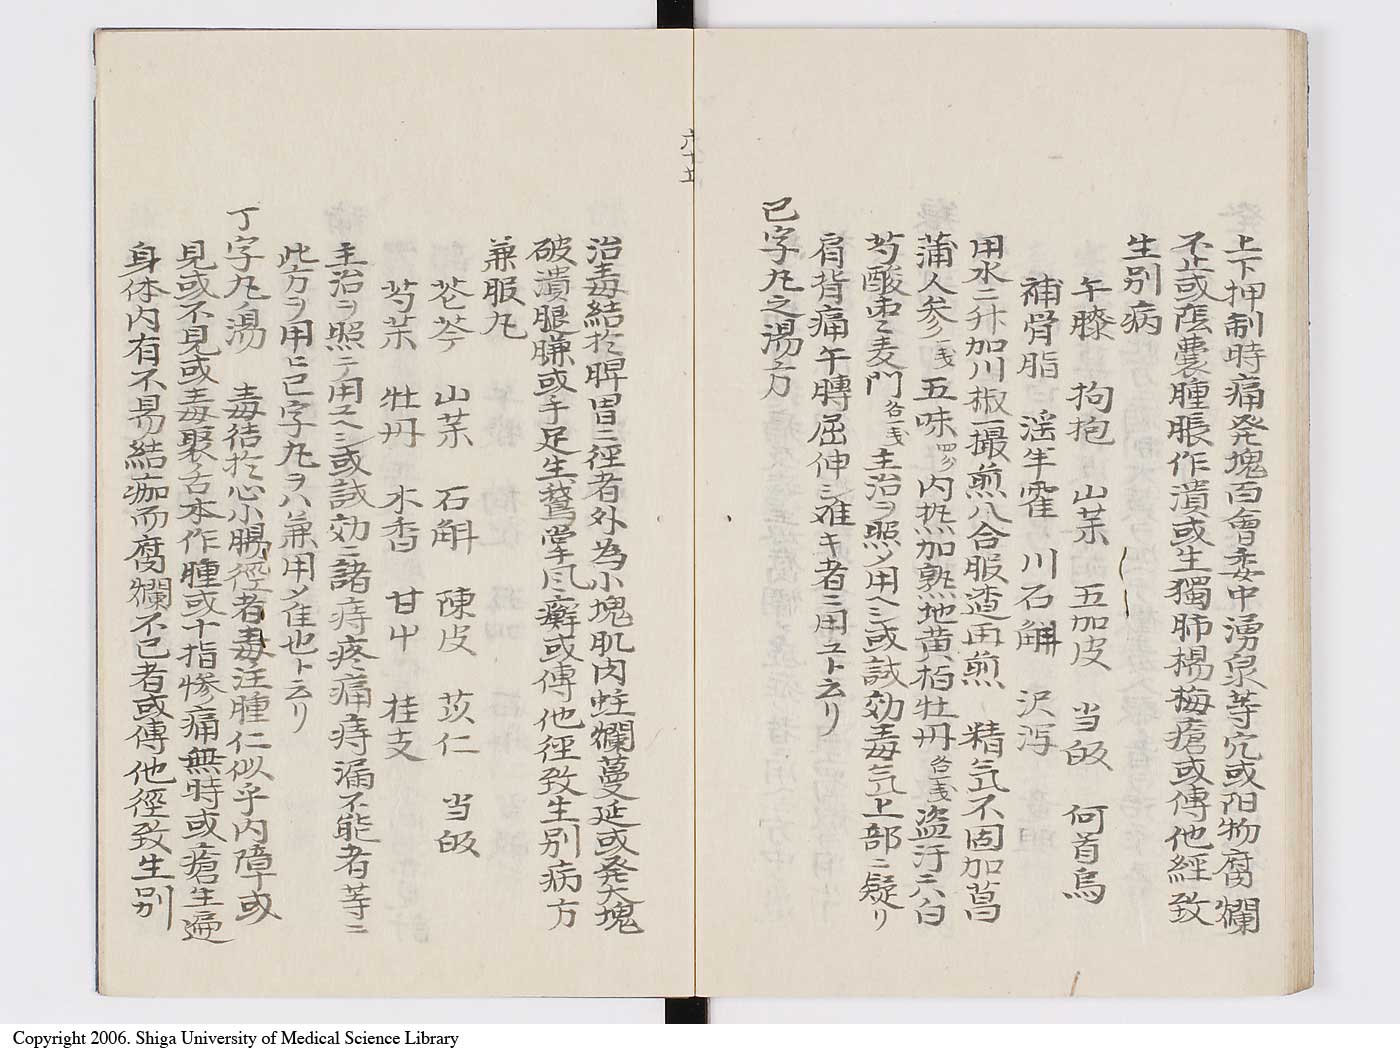 上下押制時痛発塊百會委中湧泉等穴或陽物腐爛
不止或陰囊腫脹作潰或生獨肺楊梅瘡或傳他經致
生別病
午膝 拘抱 山茱 五加皮 当皈 何首烏
補骨脂 淫羊霍 川石斛 沢泻
用水二升加川椒一撮煎八合服渣再煎 精氣不固加菖
蒲人参各一戋五味四分内热加熟地黄柏牡丹各一戋盗汗ニハ白
芍酸枣麦門各一戋主治ヲ照ノ用ヘシ或試効毒氣上部ニ凝リ
肩背痛午膊屈伸シ難キ者ニ用ユト云リ
己字九之湯方
六十五
治毒結於脾胃二径者外為小塊肌肉蛀爛蔓延或発大塊
破潰腿臁或手足生鵞掌风癬或傳他径致生別病方
兼服九
苍苓 山茱 石斛 陳皮 苡仁 当皈
芍茱 牡丹 木香 甘中 桂支
主治ヲ照シテ用ヘシ或試効ニ諸痔疼痛痔漏不能者等ニ
此方ヲ用ヒ己字九ヲハ兼用ノ隹也ト云リ
丁字九ノ湯 毒结於心小腸径者毒注瞳仁似乎内障或
見或不見或毒聚舌本作腫或十指惨痛無時或瘡生遍
身体内有不易結痂而腐爛不已者或傳他徑致生別
Copyright 2006. Shiga University of Medical Science Library